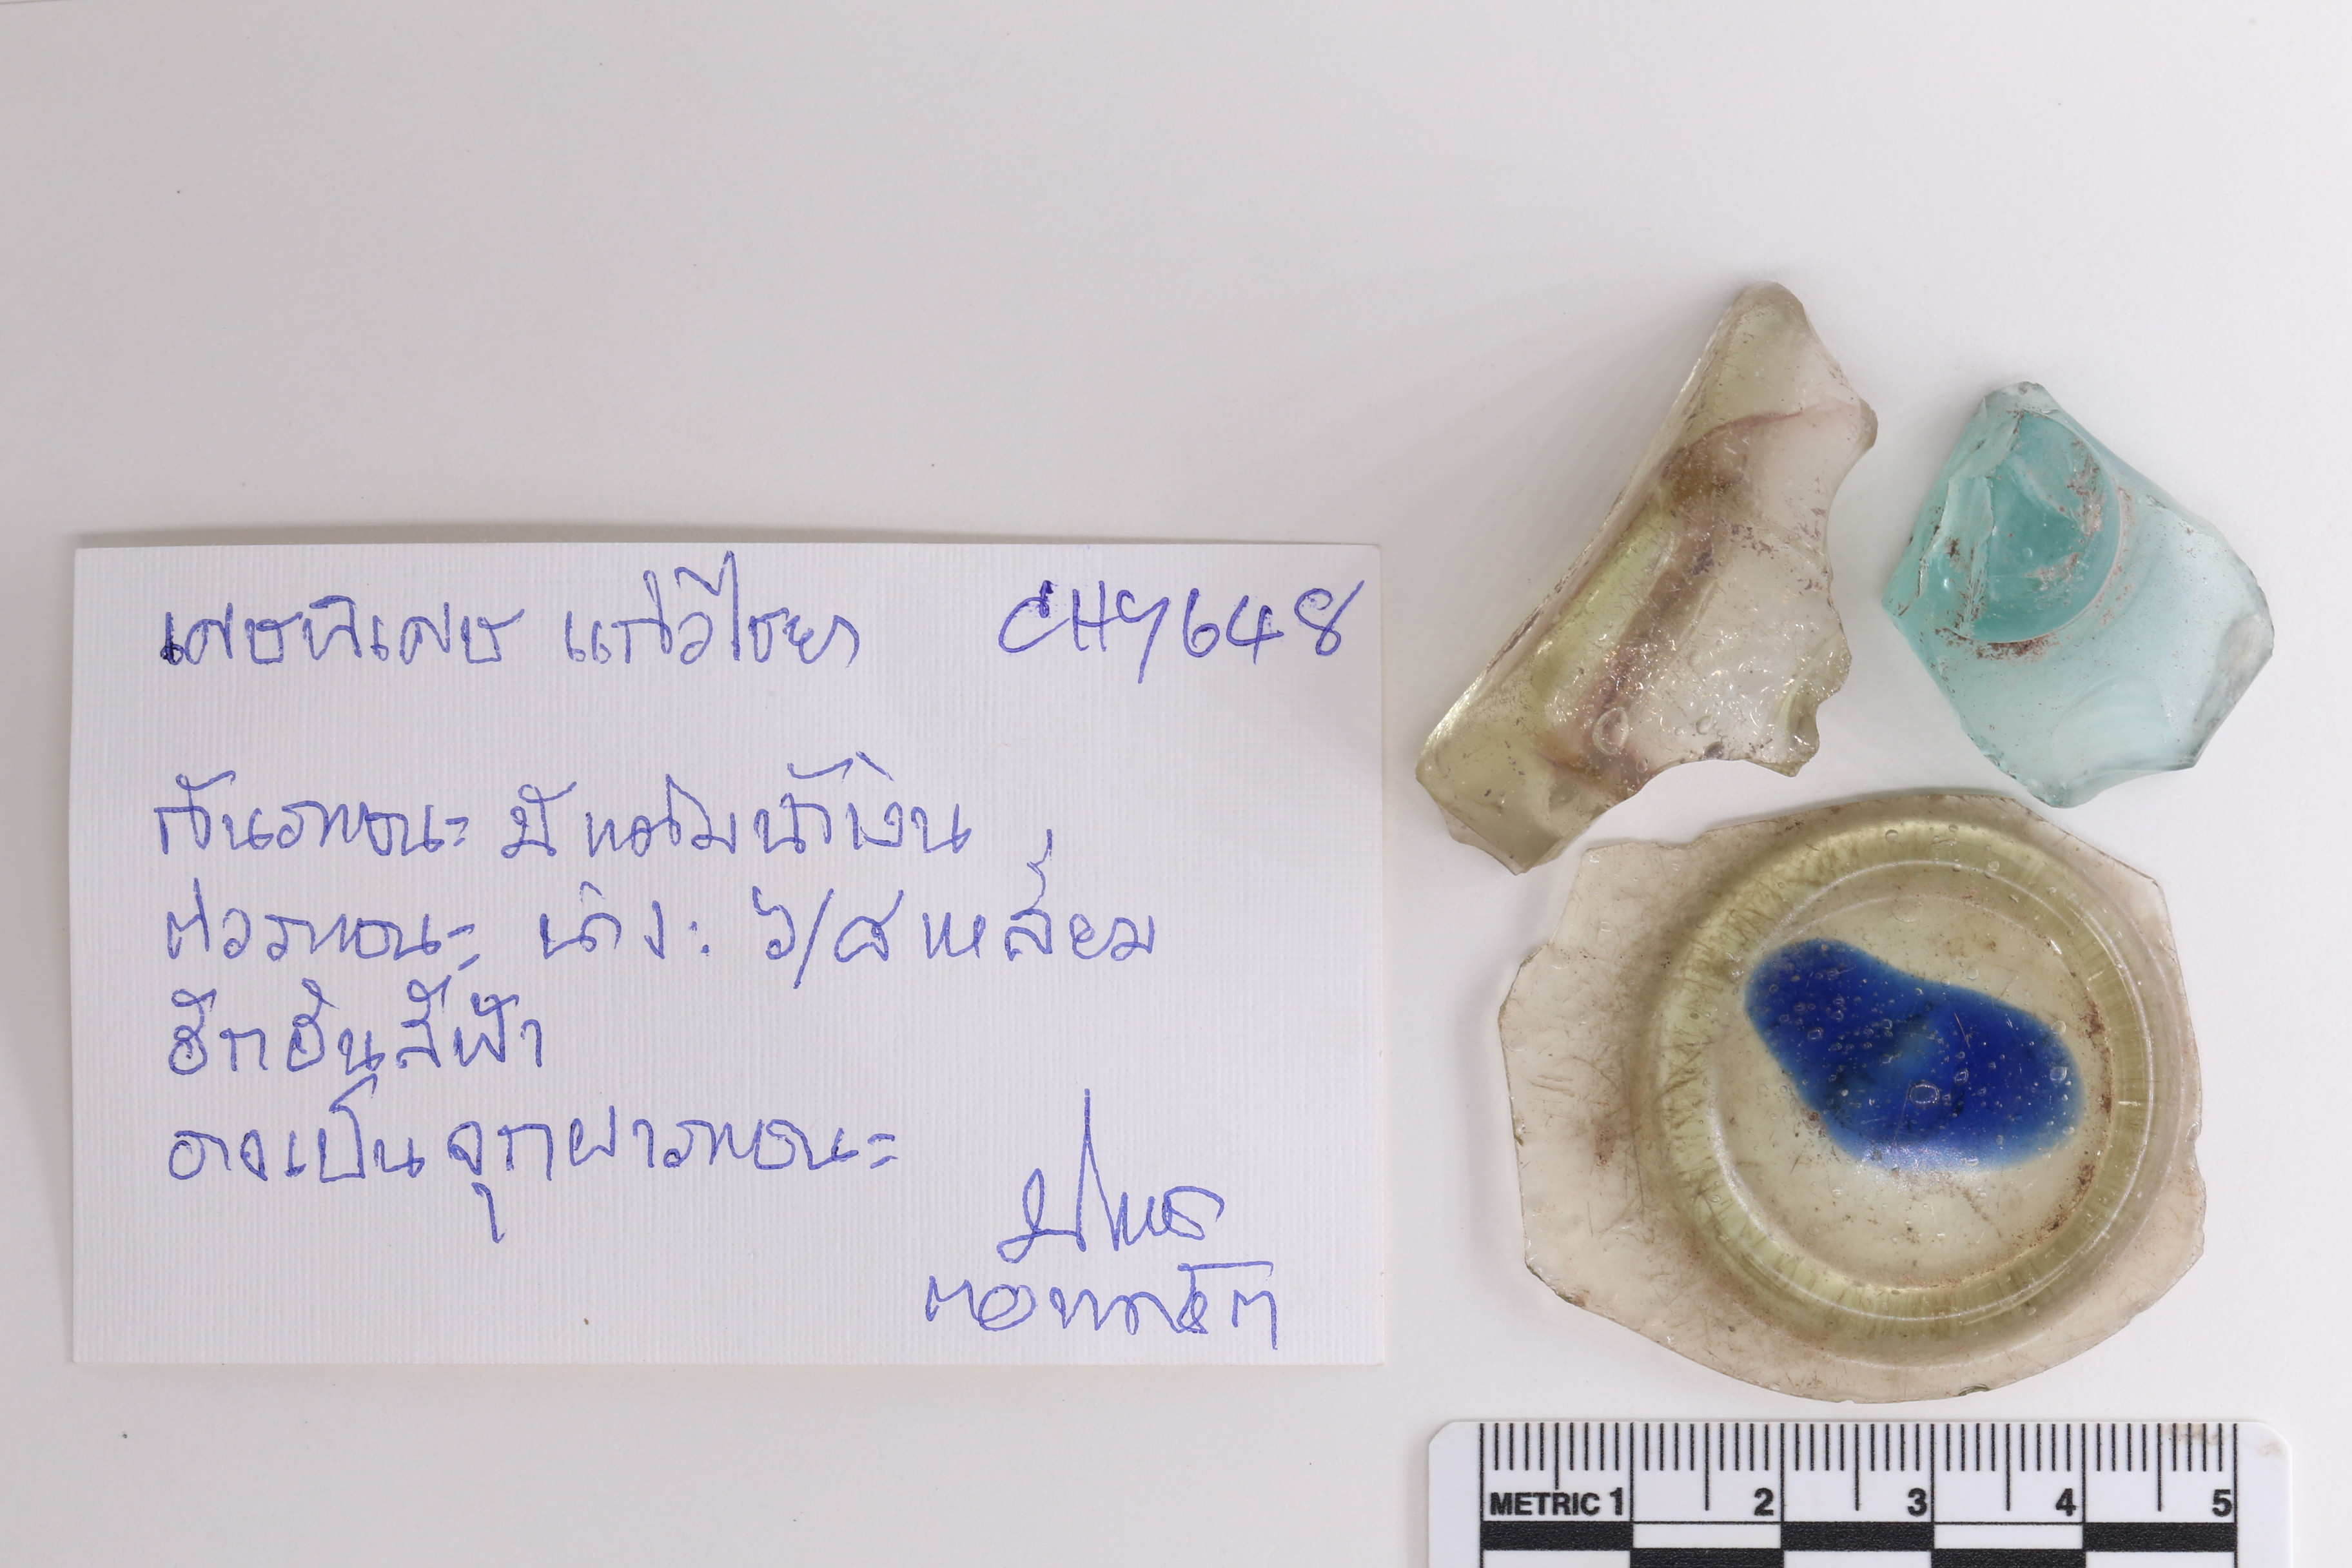 เศษพิเศษ แก้วไชยา CHY648
ก้นภาชนะ มีแต้มน้ำเงิน
ตัวภาชนะ น่าจะ ๖/๘ เหลี่ยม
อีกอันสีฟ้า
อาจเป็นจุกฝาภาชนะ
METRIC 1 2 3 4 5